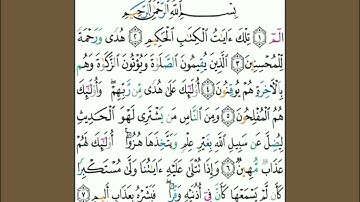 بِسْمِ ٱللَّهِ ٱلرَّحْمَٰنِ ٱلرَّحِيمِ
الٓمٓ ۝١ تِلْكَ ءَايَٰتُ ٱلْكِتَٰبِ ٱلْحَكِيمِ ۝٢ هُدًى وَرَحْمَةً
لِّلْمُحْسِنِينَ ۝٣ ٱلَّذِينَ يُقِيمُونَ ٱلصَّلَوٰةَ وَيُؤْتُونَ ٱلزَّكَوٰةَ وَهُم
بِٱلْـَٔاخِرَةِ هُمْ يُوقِنُونَ ۝٤ أُو۟لَٰٓئِكَ عَلَىٰ هُدًى مِّن رَّبِّهِمْ ۖ وَأُو۟لَٰٓئِكَ
هُمُ ٱلْمُفْلِحُونَ ۝٥ وَمِنَ ٱلنَّاسِ مَن يَشْتَرِى لَهْوَ ٱلْحَدِيثِ
لِيُضِلَّ عَن سَبِيلِ ٱللَّهِ بِغَيْرِ عِلْمٍ وَيَتَّخِذَهَا هُزُوًا ۚ أُو۟لَٰٓئِكَ لَهُمْ
عَذَابٌ مُّهِينٌ ۝٦ وَإِذَا تُتْلَىٰ عَلَيْهِ ءَايَٰتُنَا وَلَّىٰ مُسْتَكْبِرًا
كَأَن لَّمْ يَسْمَعْهَا كَأَنَّ فِىٓ أُذُنَيْهِ وَقْرًا ۖ فَبَشِّرْهُ بِعَذَابٍ أَلِيمٍ ۝٧